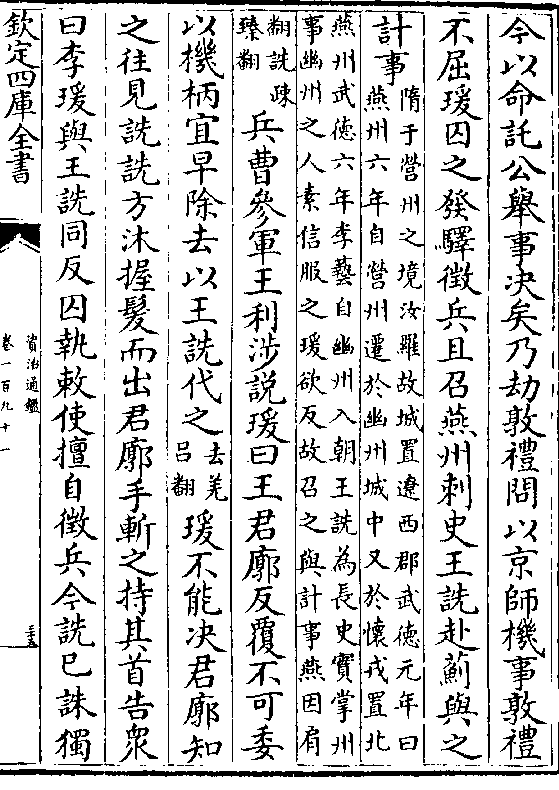 今以命託公舉事决矣乃劫敦禮問以京師機事敦禮
不屈瑗囚之發驛徵兵且召燕州刺史王詵赴薊與之
計事
隋于營州之境汝羅故城置遼西郡武德元年曰
燕州六年自營州遷於幽州城中又於懷戎置北
燕州武德六年李藝自幽州入朝王詵為長史實掌州
事幽州之人素信服之瑗欲反故召之與計事燕因肩
翻詵疎
臻翻
兵曹參軍王利涉說瑗曰王君廓反覆不可委
以機柄宜早除去以王詵代之
去羌
吕翻
瑗不能决君廓知
之往見詵詵方沐握髮而出君廓手斬之持其首告衆
曰李瑗與王詵同反囚執敕使擅自徵兵今詵已誅獨
欽定四庫全書
資治通鑑
卷一百九十一